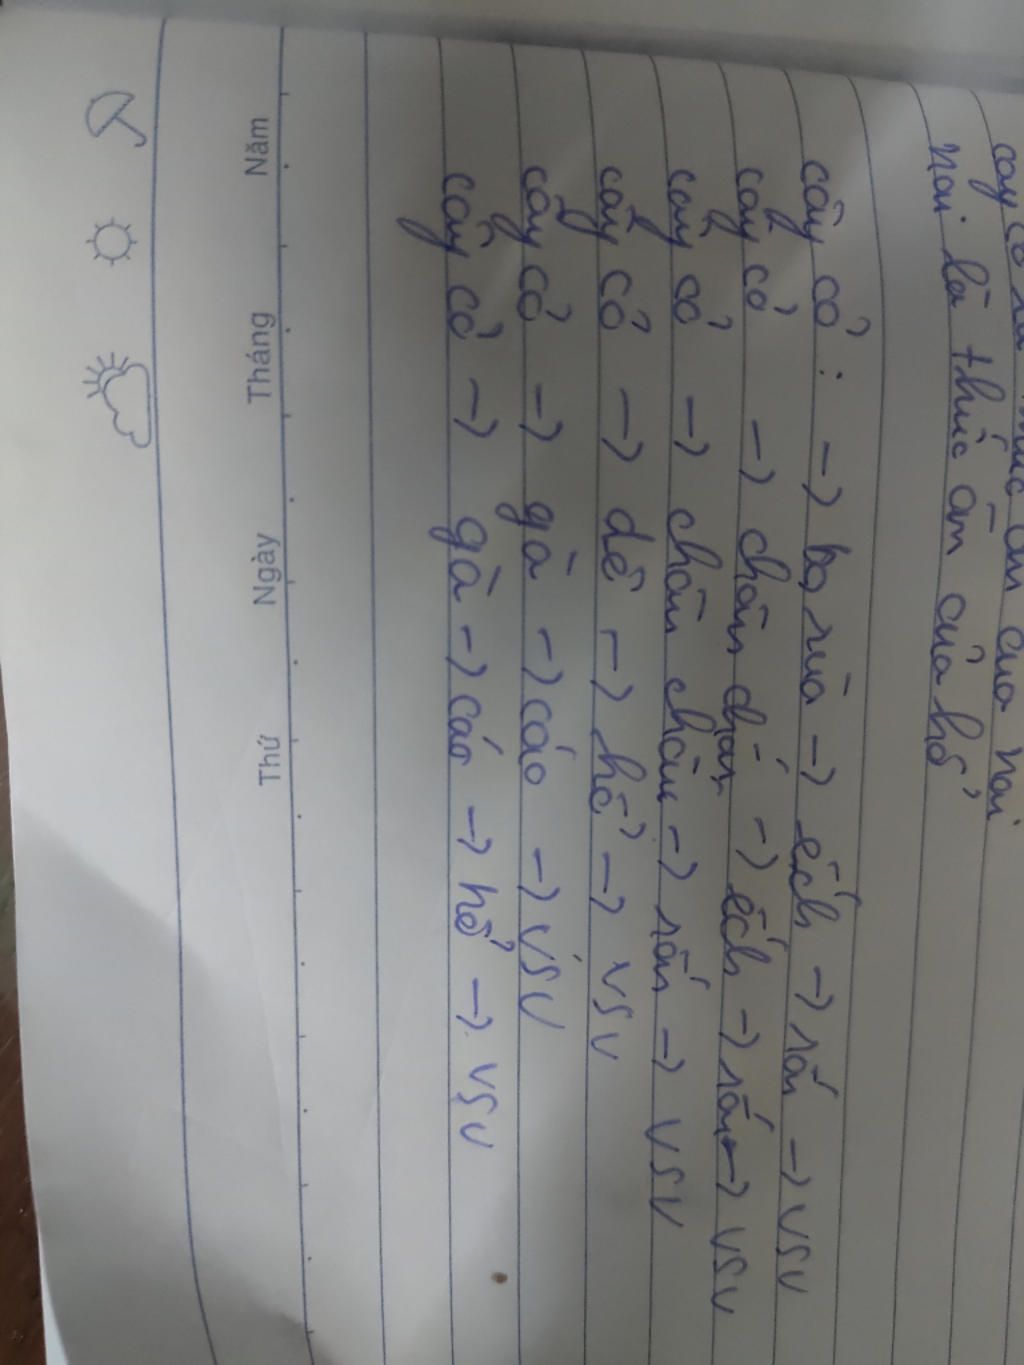 cây cỏ là thức ăn của nai
nai là thức ăn của hổ
cây cỏ : → bọ rùa → ếch → rắn → VSV
cây cỏ → châu chấu → ếch → rắn → VSV
cây cỏ → châu chấu → rắn → VSV
cây cỏ → dê → hổ → VSV
cây cỏ → gà → cáo → VSV
cây cỏ → gà → cáo → hổ → VSV
Năm Tháng Ngày Thứ